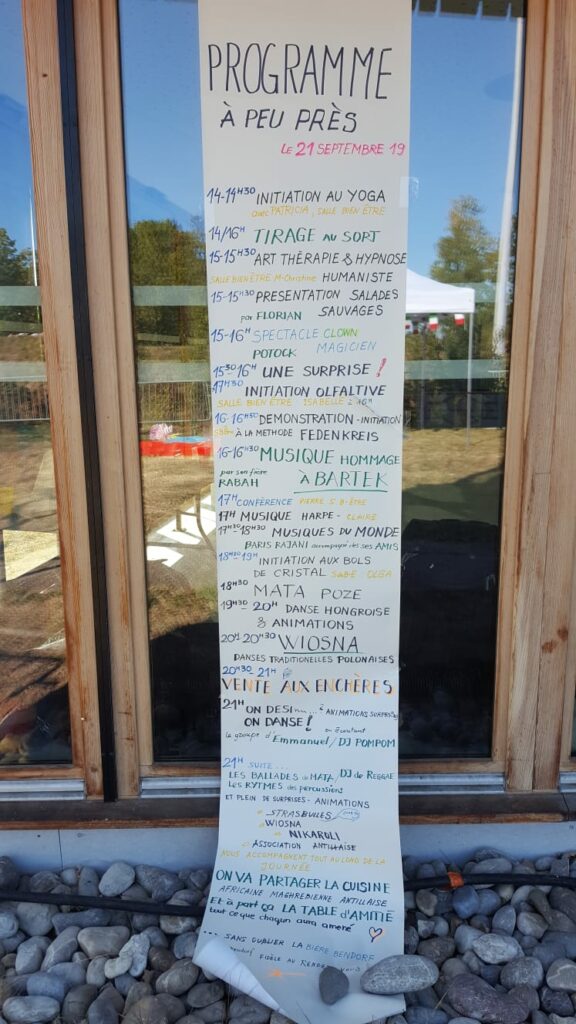 PROGRAMME
À PEU PRÈS
LE 21 SEPTEMBRE 19
14-14H30 INITIATION AU YOGA
avec PATRICIA, SALLE BIEN ETRE
14/16H TIRAGE AU SORT
15-15H30 ART THÉRAPIE & HYPNOSE
SALLE BIEN ÊTRE M-Christine HUMANISTE
15-15H30 PRESENTATION SALADES
par FLORIAN SAUVAGES
15-16H SPECTACLE CLOWN
POTOCK MAGICIEN
15H30-16H UNE SURPRISE !
17H30 INITIATION OLFALTIVE
SALLE BIEN ÊTRE ISABELLE
16-16H50 DEMONSTRATION-INITIATION
À LA METHODE FEDENKREIS
16-16H30 MUSIQUE HOMMAGE
par son frère
RABAH À BARTEK
17H CONFÉRENCE PIERRE S B-ÊTRE
17H MUSIQUE HARPE - CLAIRE
17H30-18H30 MUSIQUES DU MONDE
PARIS RAJANI accompagné des ses AMIS
18H30-19H INITIATION AUX BOLS
DE CRISTAL OLGA
18H30 MATA POZE
19H30-20H DANSE HONGROISE
& ANIMATIONS
20H-20H30 WIOSNA
DANSES TRADITIONELLES POLONAISES
20H30-21H
VENTE AUX ENCHÈRES
21H ON DESI ... & ANIMATIONS SURPRISES
ON DANSE! en écoutant
le groupe d'Emmanuel/DJ POMPOM
21H SUITE...
LES BALLADES de MATA/DJ de REGGAE
Les RYTMES des percussions
ET PLEIN DE SURPRISES - ANIMATIONS
STRASBULLES
WIOSNA
NIKAROLI
ASSOCIATION ANTILLAISE
NOUS ACCOMPAGNENT TOUT AU LONG DE LA
JOURNÉE
ON VA PARTAGER LA CUISINE
AFRICAINE MAGHREBIENNE ANTILLAISE
Et à part ça LA TABLE d'AMITIÉ
tout ce que chacun aura amené
... SANS OUBLIER LA BIÈRE BENDORF
FIDÈLE AU RENDEZ